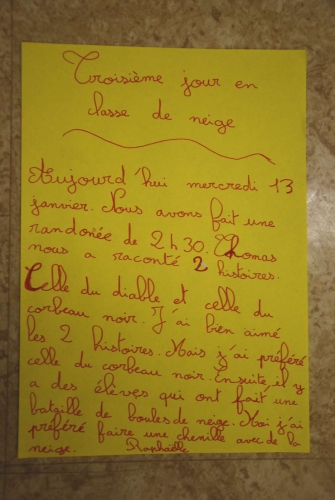 Troisième jour en
classe de neige
Aujourd'hui mercredi 13
janvier. Nous avons fait une
randonée de 2h30. Thomas
nous a raconté 2 histoires.
Celle du diable et celle du
corbeau noir. J'ai bien aimé
les 2 histoires. Mais j'ai préféré
celle du corbeau noir. Ensuite, il y
a des élèves qui ont fait une
bataille de boules de neige. Moi j'ai
préféré faire une chenille avec de la
neige. Raphaëlle